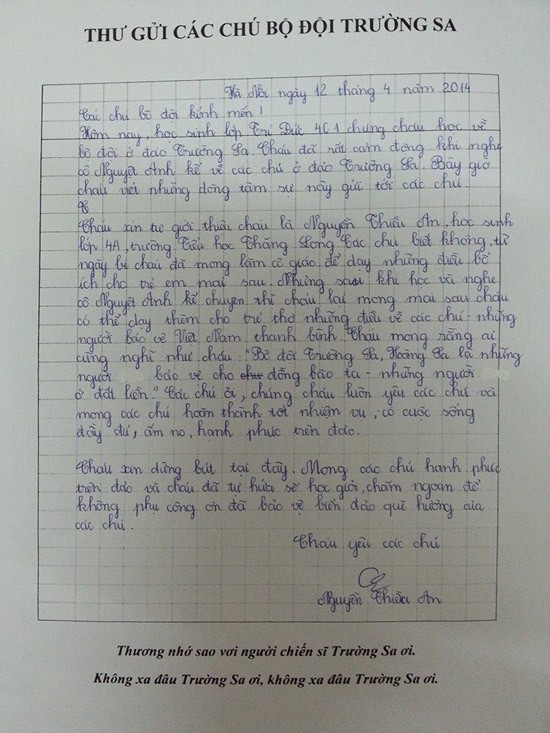 THƯ GỬI CÁC CHÚ BỘ ĐỘI TRƯỜNG SA
Hà Nội ngày 12 tháng 4 năm 2014
Các chú bộ đội kính mến!
Hôm nay, học sinh lớp Trí Đức 4C1 chúng cháu học về
bộ đội ở đảo Trường Sa. Cháu đã rất cảm động khi nghe
cô Nguyệt Anh kể về các chú ở đảo Trường Sa. Bây giờ
cháu viết những dòng tâm sự này gửi tới các chú.
C
Cháu xin tự giới thiệu cháu là Nguyễn Thiều An, học sinh
lớp 4A, trường Tiểu học Thăng Long. Các chú biết không, từ
ngày bé cháu đã mong làm cô giáo để dạy những điều bổ
ích cho trẻ em mai sau. Nhưng sau khi học và nghe
cô Nguyệt Anh kể chuyện thì cháu lại mong mai sau cháu
có thể dạy thêm cho trẻ thơ những điều về các chú - những
người bảo vệ Việt Nam thanh bình. Cháu mong rằng ai
cũng nghĩ như cháu: "Bộ đội Trường Sa, Hoàng Sa là những
người bảo vệ cho đồng bào ta - những người
ở đất liền." Các chú ơi, chúng cháu luôn yêu các chú và
mong các chú hoàn thành tốt nhiệm vụ, có cuộc sống
đầy đủ, ấm no, hạnh phúc trên đảo.
Cháu xin dừng bút tại đây. Mong các chú hạnh phúc
trên đảo và cháu đã tự hứa sẽ học giỏi, chăm ngoan để
không phụ công ơn đã bảo vệ biển đảo quê hương của
các chú.
Cháu yêu các chú
Nguyễn Thiều An
Thương nhớ sao vơi người chiến sĩ Trường Sa ơi.
Không xa đâu Trường Sa ơi, không xa đâu Trường Sa ơi.